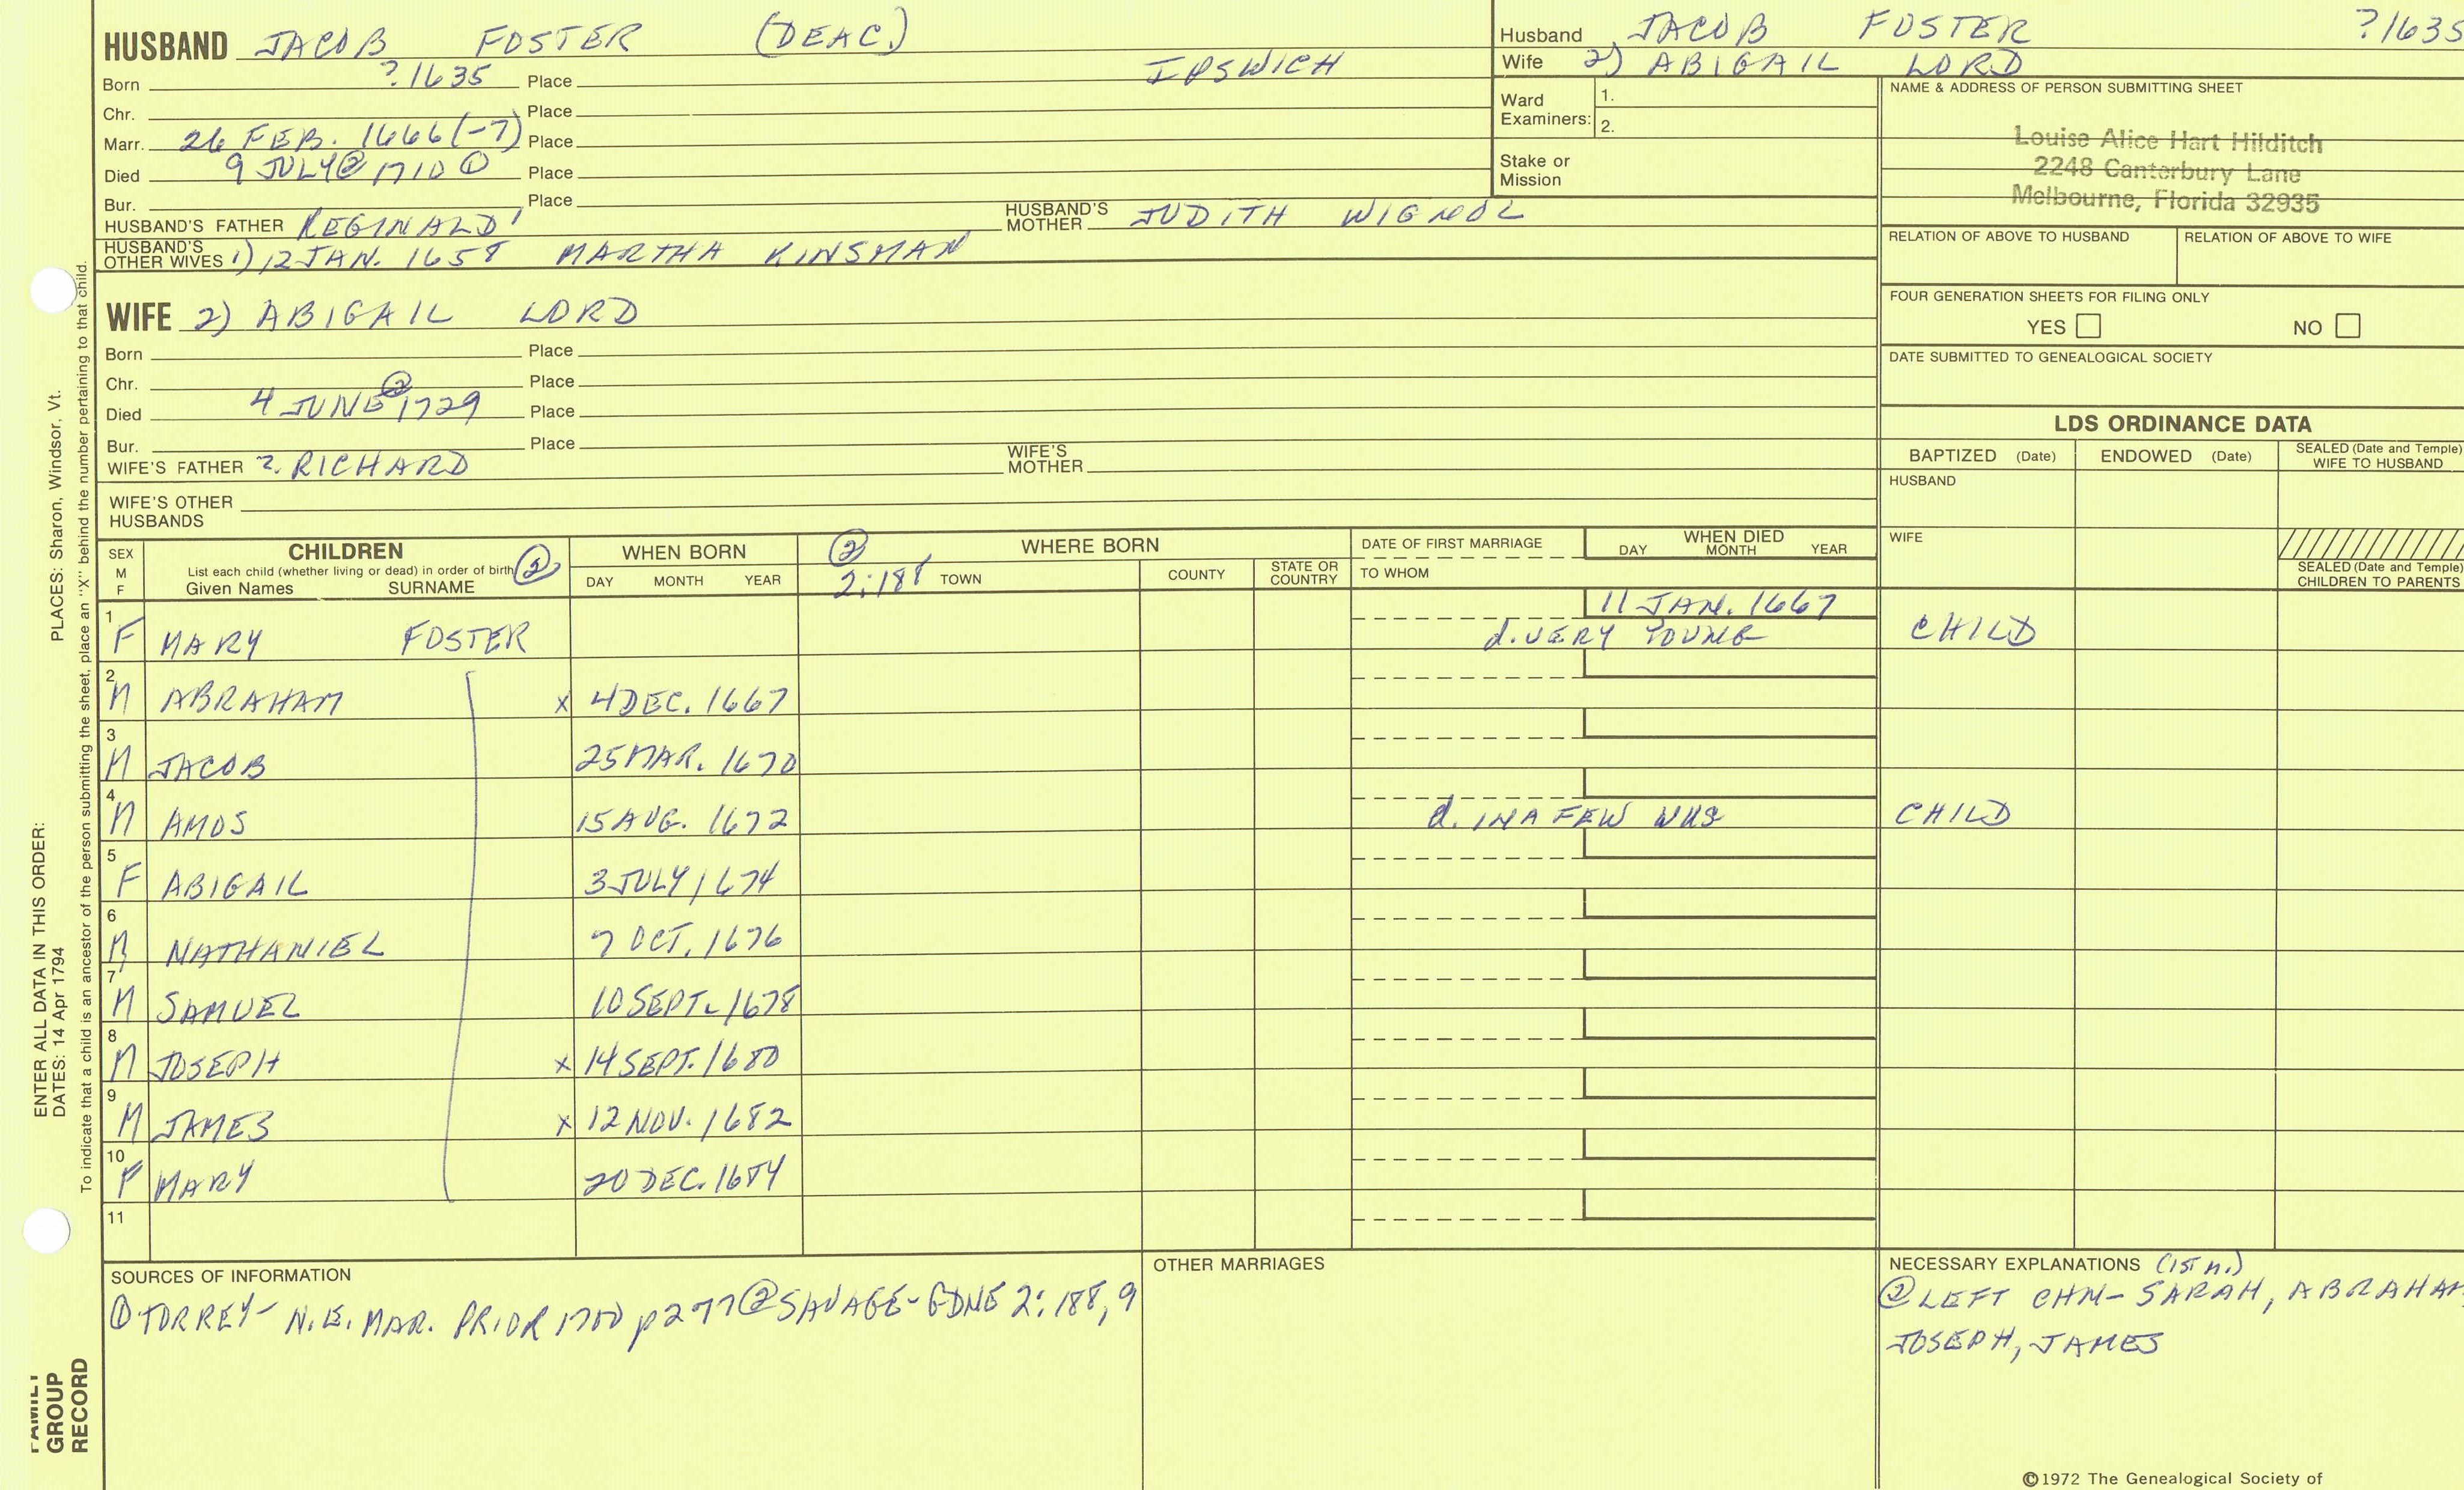 HUSBAND JACOB FOSTER (DEAC.)
Born ?1635 Place IPSWICH
Chr. Place
Marr. 26 FEB. 1666(-7) Place
Died 9 JULY② 1710 ① Place
Bur. Place
HUSBAND'S FATHER REGINALD¹ HUSBAND'S MOTHER JUDITH WIGNOL
HUSBAND'S OTHER WIVES 1) 12 JAN. 1658 MARTHA KINSMAN
WIFE 2) ABIGAIL LORD
Born Place
Chr. Place
Died 4 JUNE② 1729 Place
Bur. Place
WIFE'S FATHER ?. RICHARD WIFE'S MOTHER
WIFE'S OTHER HUSBANDS
Husband JACOB FOSTER ?1635
Wife 2) ABIGAIL LORD
Ward Examiners: 1.
2.
Stake or Mission
NAME & ADDRESS OF PERSON SUBMITTING SHEET
Louise Alice Hart Hilditch
2248 Canterbury Lane
Melbourne, Florida 32935
RELATION OF ABOVE TO HUSBAND RELATION OF ABOVE TO WIFE
FOUR GENERATION SHEETS FOR FILING ONLY
YES NO
DATE SUBMITTED TO GENEALOGICAL SOCIETY
LDS ORDINANCE DATA
BAPTIZED (Date) ENDOWED (Date) SEALED (Date and Temple) WIFE TO HUSBAND
HUSBAND
WIFE
SEALED (Date and Temple) CHILDREN TO PARENTS
SEX M F CHILDREN WHEN BORN ② WHERE BORN DATE OF FIRST MARRIAGE WHEN DIED
List each child (whether living or dead) in order of birth ②
Given Names SURNAME DAY MONTH YEAR 2:188 TOWN COUNTY STATE OR COUNTRY TO WHOM DAY MONTH YEAR
1 F MARY FOSTER 11 JAN. 1667 d. VERY YOUNG CHILD
2 M ABRAHAM x 4 DEC. 1667
3 M JACOB 25 MAR. 1670
4 M AMOS 15 AUG. 1672 d. IN A FEW WKS CHILD
5 F ABIGAIL 3 JULY 1674
6 M NATHANIEL 7 OCT. 1676
7 M SAMUEL 10 SEPT. 1678
8 M JOSEPH x 14 SEPT. 1680
9 M JAMES x 12 NOV. 1682
10 F MARY 20 DEC. 1684
11
SOURCES OF INFORMATION
① TORREY- N.E. MAR. PRIOR 1700 p277 ② SAVAGE-GDNE 2:188,9
OTHER MARRIAGES
NECESSARY EXPLANATIONS (1ST M.)
② LEFT CHN- SARAH, ABRAHAM
JOSEPH, JAMES
©1972 The Genealogical Society of
PLACES: Sharon, Windsor, Vt.
ENTER ALL DATA IN THIS ORDER:
DATES: 14 Apr 1794
To indicate that a child is an ancestor of the person submitting the sheet, place an "X" behind the number pertaining to that child.
FAMILY
GROUP
RECORD